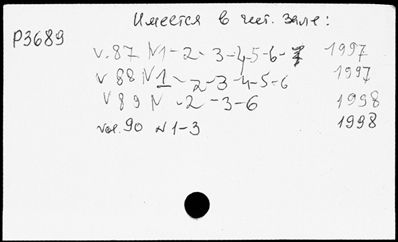 Имеется в чит. зале:
P3689
v.87 N1-2-3-4-5-6-7 1997
v 88 N1-2-3-4-5-6 1997
v 89 N-2-3-6 1998
vol.90 N1-3 1998